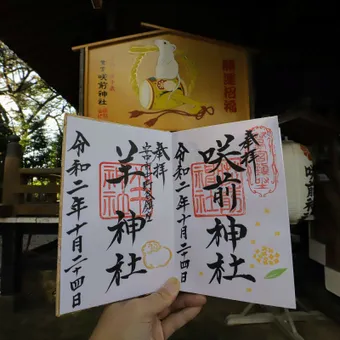 開運招福
咲前神社
奉拝
咲前神社
令和二年十月二十四日
奉拝
羊神社
令和二年十月二十四日